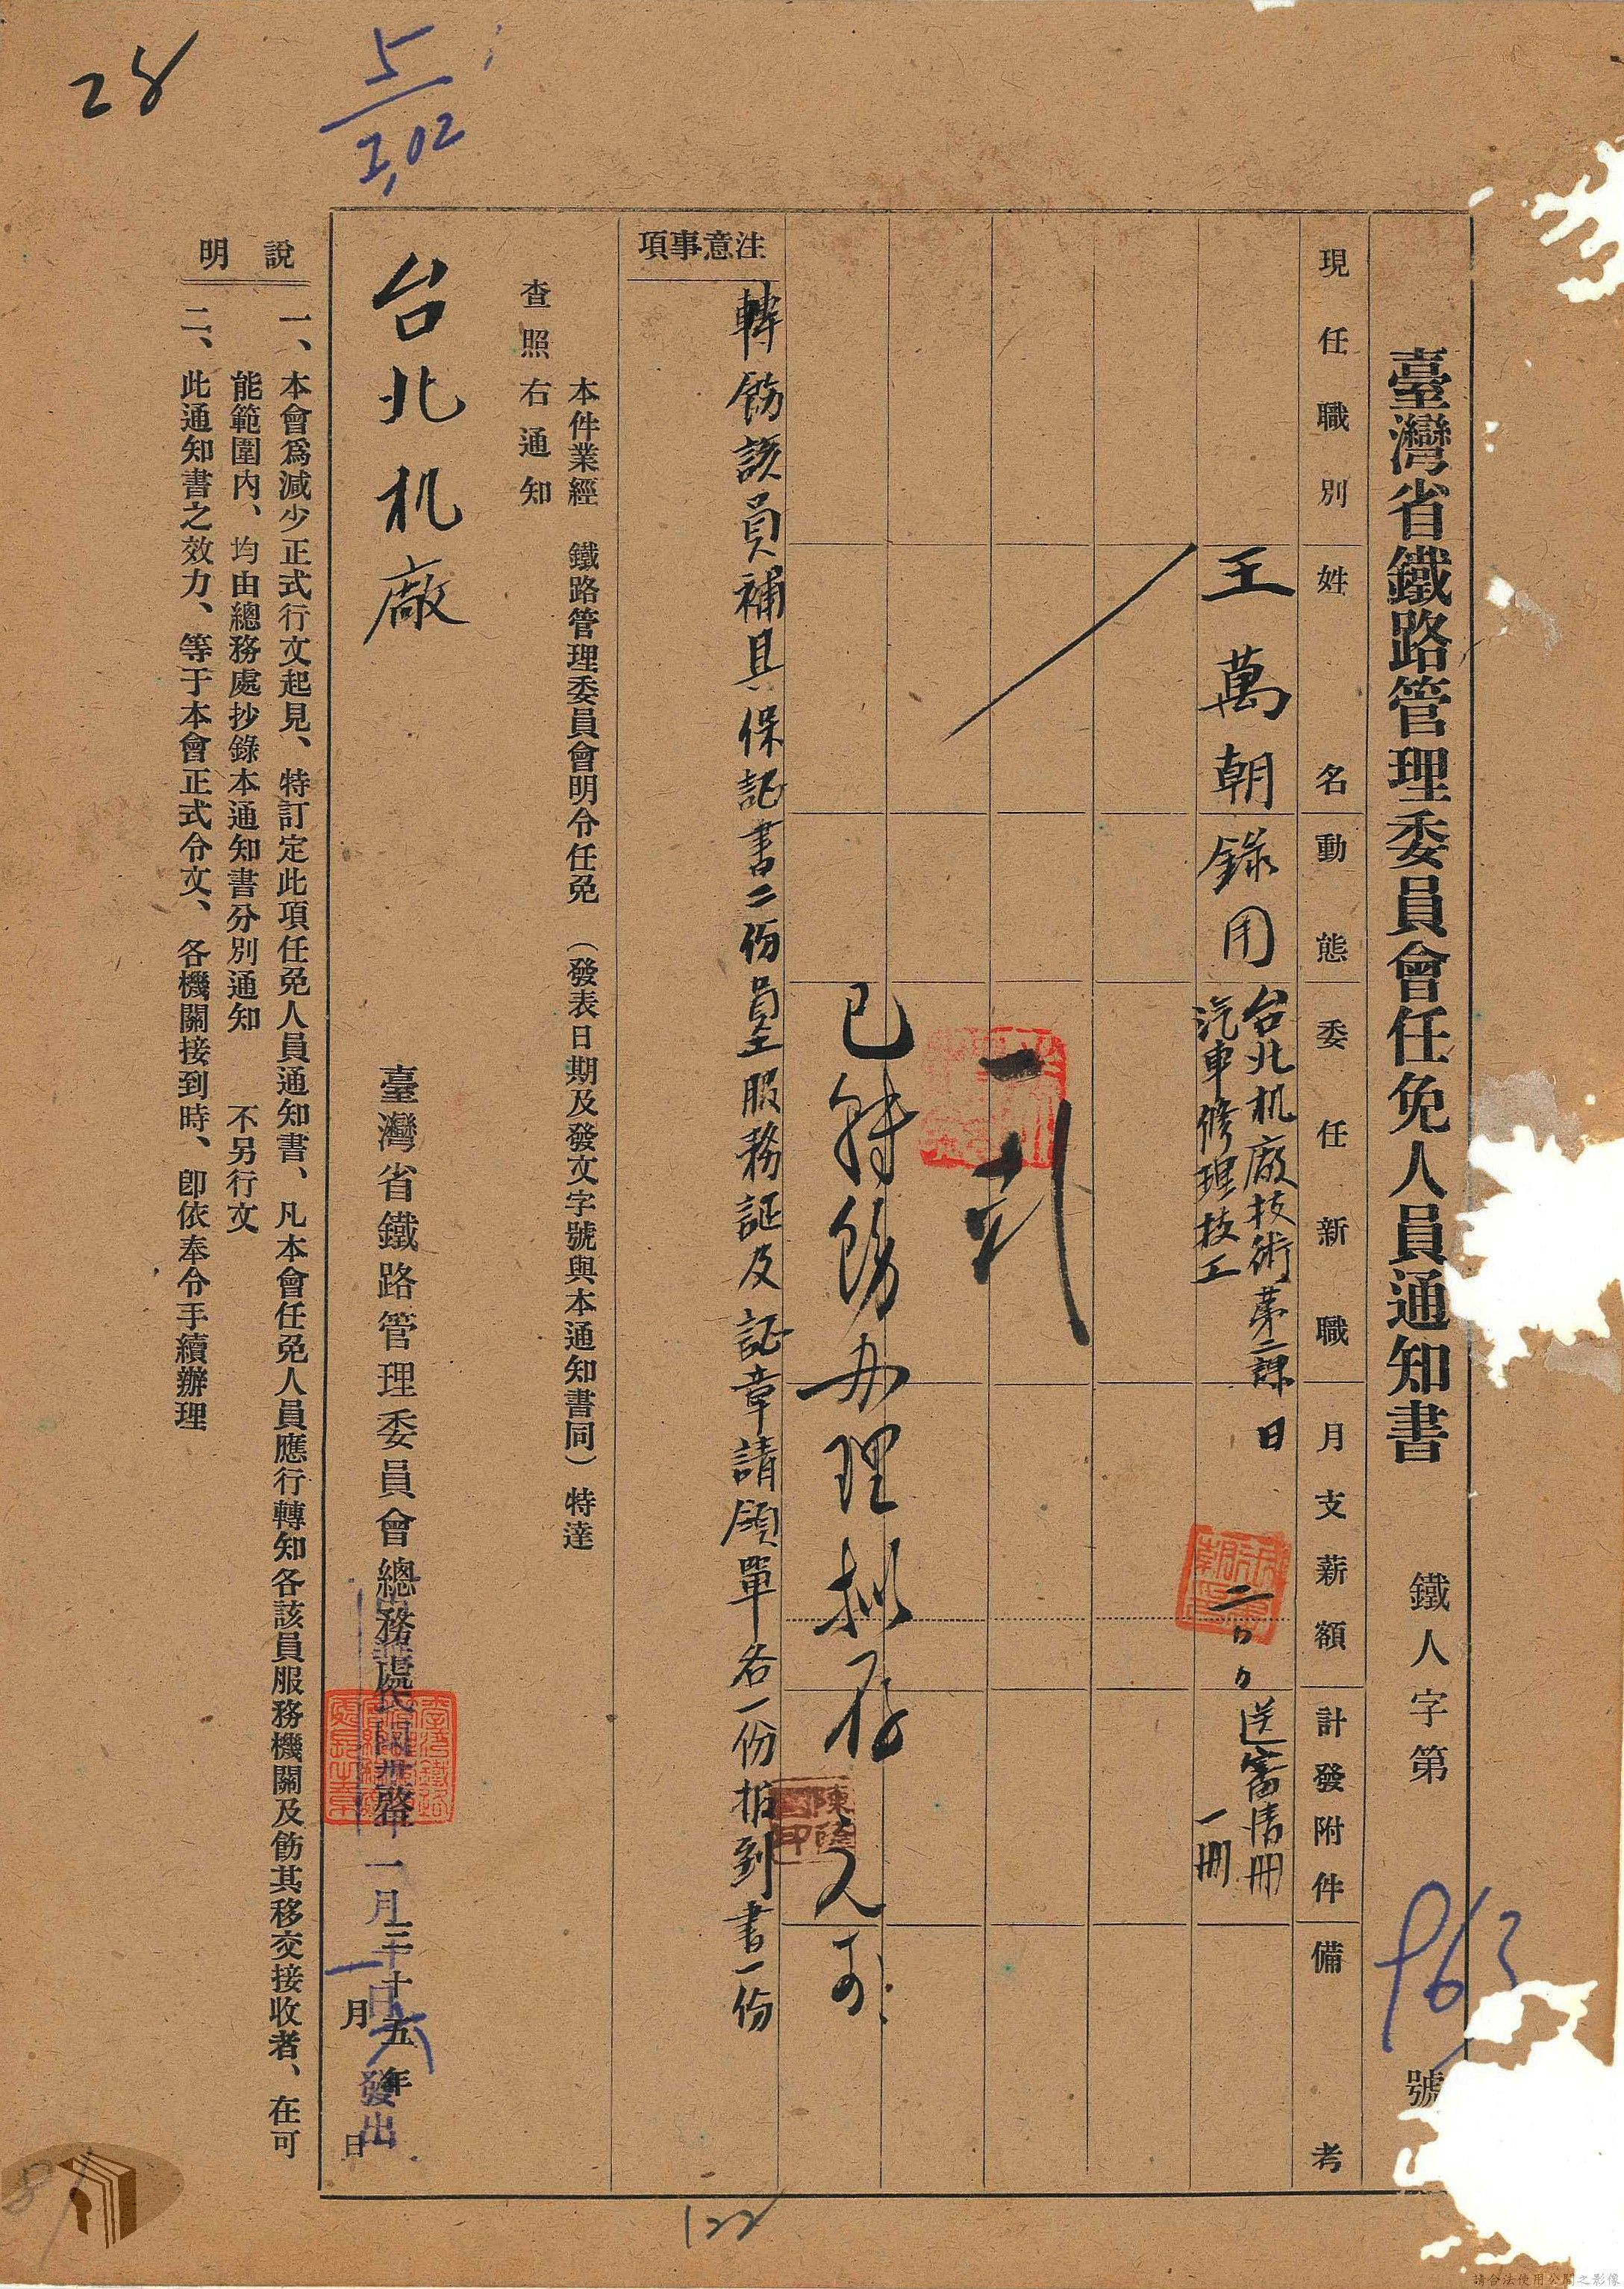 28
5
2,02
臺灣省鐵路管理委員會任免人員通知書
鐵人字第
963
號
現任職別
姓名
動態
委任新職
月支薪額
計發附件
備考
王萬朝
錄用
台北机廠技術第二課
汽車修理技工
日
二
送審清冊
一冊
已轉飭办理拟存
陳
注意事項
轉飭該員補具保証書二份員工服務証及証章請領單各一份报到書一份
本件業經 鐵路管理委員會明令任免 (發表日期及發文字號與本通知書同) 特達
查照 右通知
台北机廠
臺灣省鐵路管理委員會總務處啓
三十五年
月
日
一月
日發出
說明
一、本會爲減少正式行文起見、特訂定此項任免人員通知書、凡本會任免人員應行轉知各該員服務機關及飭其移交接收者、在可
能範圍內、均由總務處抄錄本通知書分別通知 不另行文
二、此通知書之效力、等于本會正式令文、各機關接到時、卽依奉令手續辦理
122
81
請合法使用公開之影像